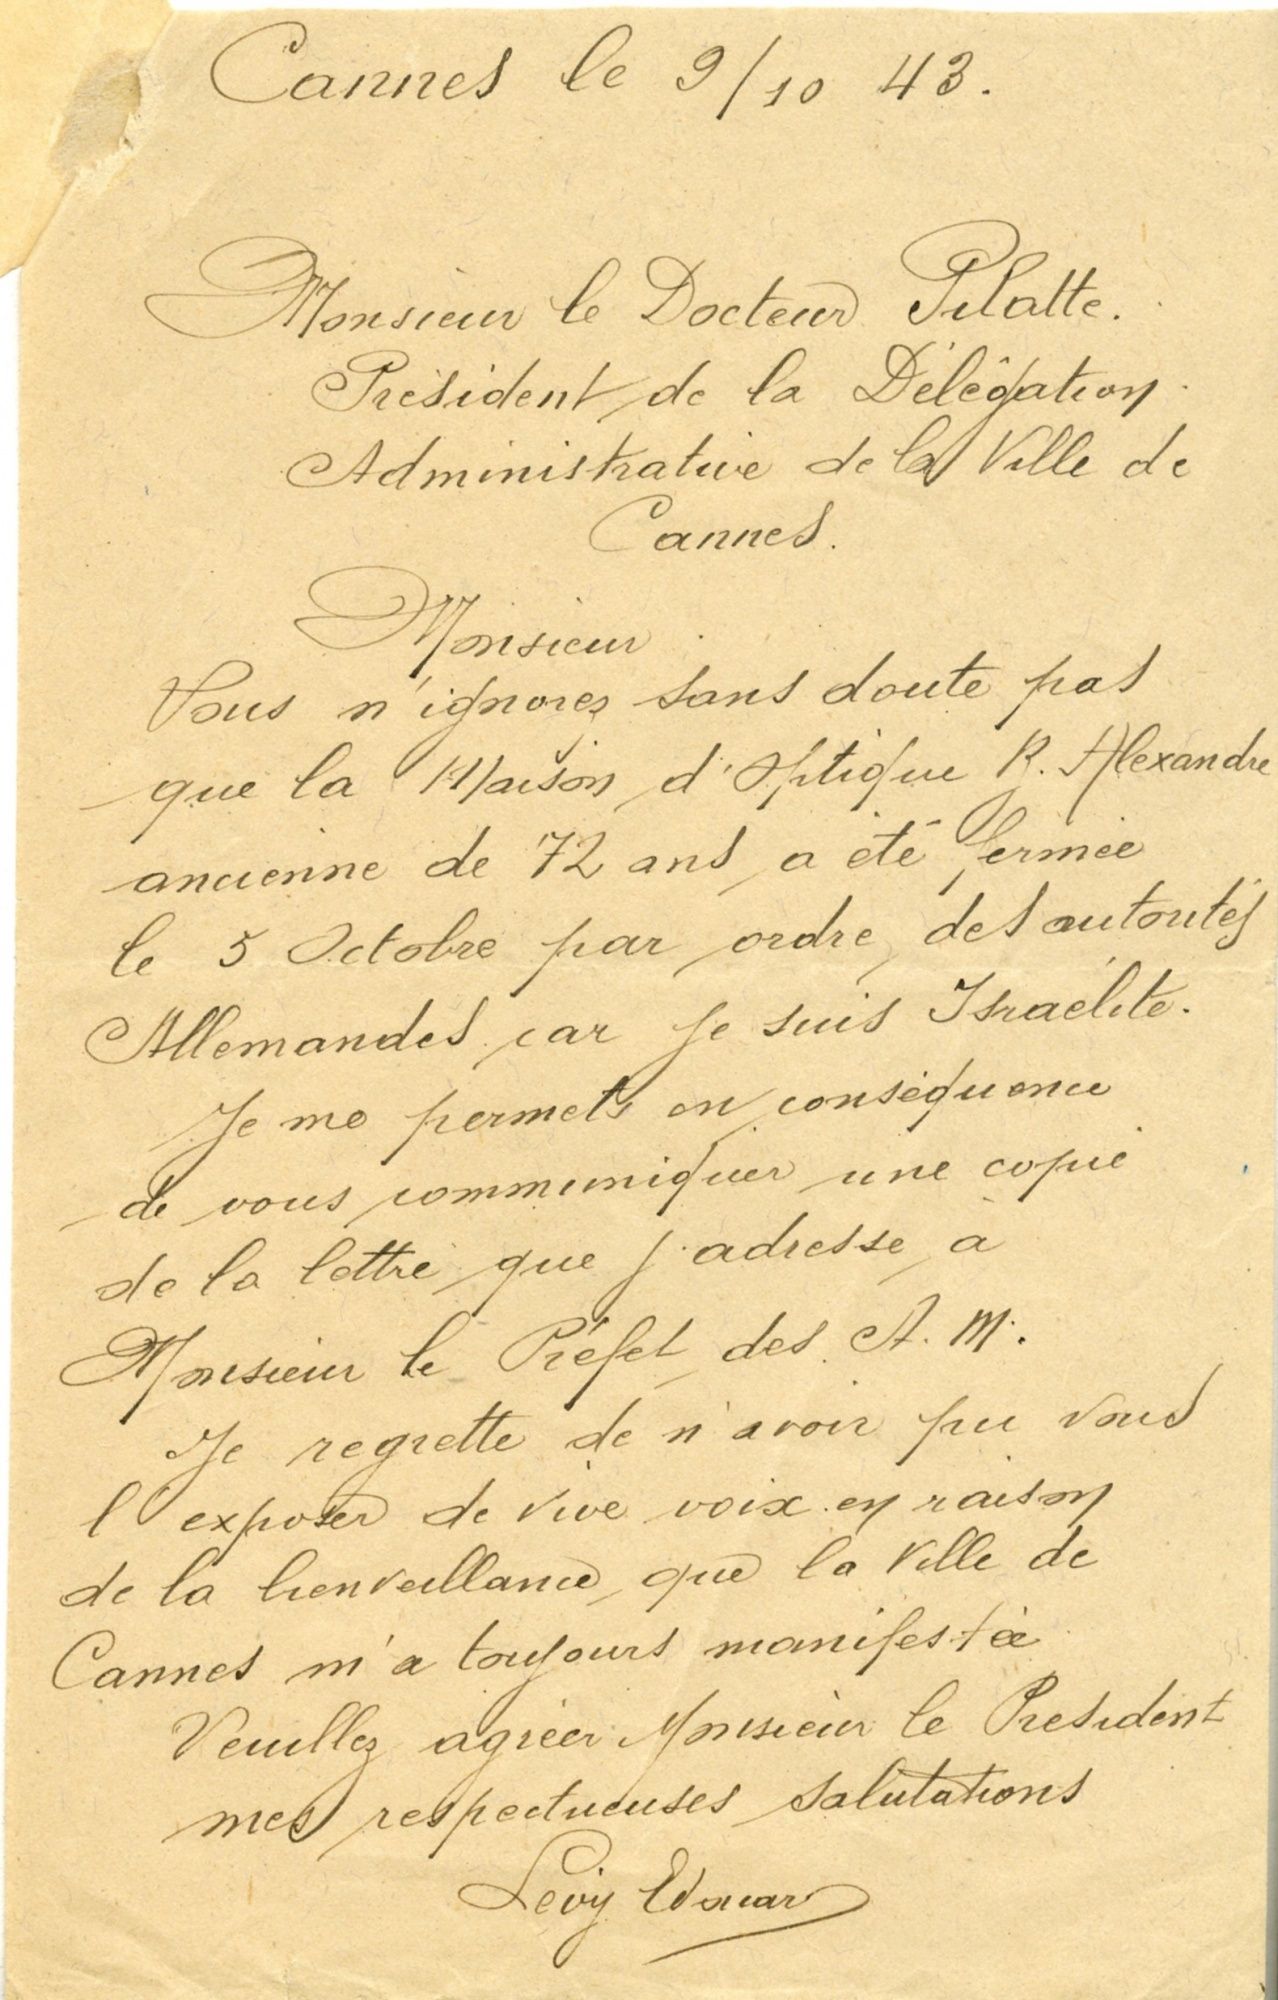 Cannes le 9/10 43.
Monsieur le Docteur Pilatte.
Président de la Délégation
Administrative de la Ville de
Cannes.
Monsieur
Vous n'ignorez sans doute pas
que la Maison d'Optique R. Alexandre
ancienne de 72 ans a été fermée
le 5 Octobre par ordre des autorités
Allemandes car je suis Israélite.
Je me permets en conséquence
de vous communiquer une copie
de la lettre que j'adresse à
Monsieur le Préfet des A. M.
Je regrette de n'avoir pu vous
l'exposer de vive voix en raison
de la bienveillance que la Ville de
Cannes m'a toujours manifestée
Veuillez agréer Monsieur le President
mes respectueuses salutations
Levy Edouard